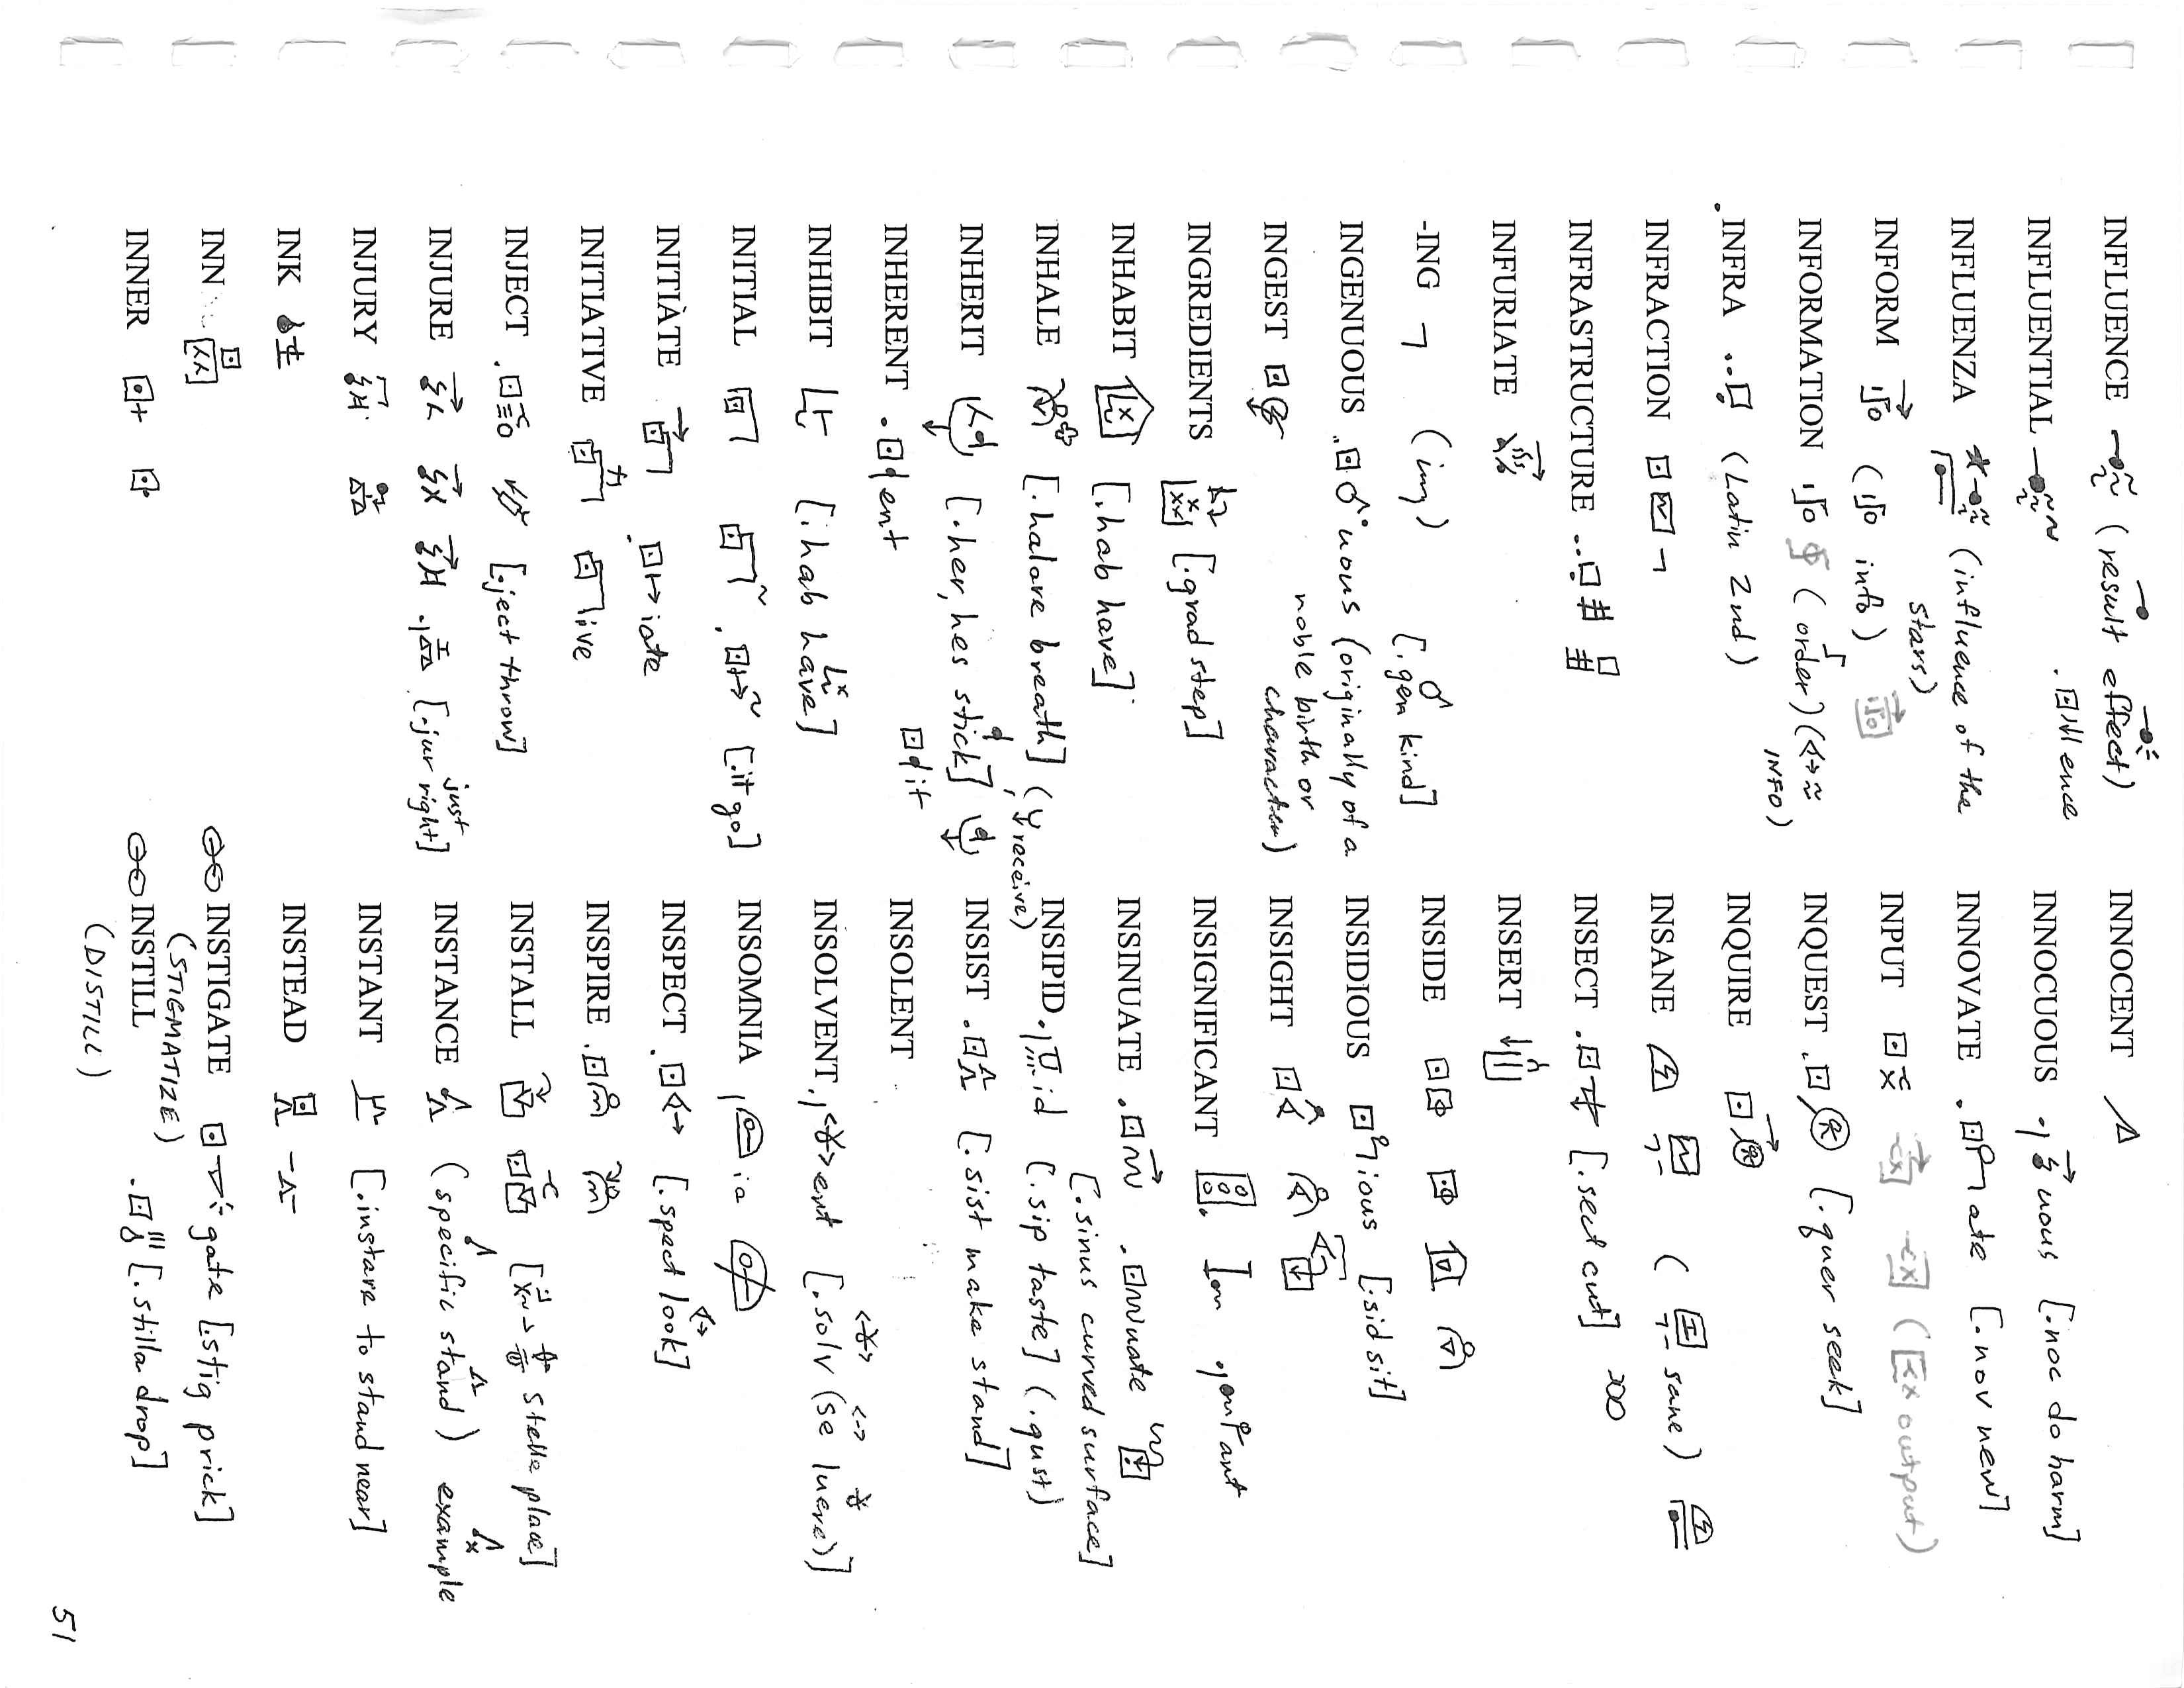 INFLUENCE (result effect)
INFLUENTIAL . ence
INFLUENZA (influence of the
stars)
INFORM ( info)
INFORMATION (order) (
INFO)
.INFRA (Latin 2nd)
INFRACTION
INFRASTRUCTURE
INFURIATE
-ING (ing) [.gen kind]
INGENUOUS uous (originally of a
noble birth or
character)
INGEST
INGREDIENTS [.grad step]
INHABIT [.hab have]
INHALE [.halare breath] ( receive)
INHERIT [.her, hes stick]
INHERENT ent it
INHIBIT [.hab have]
INITIAL [.it go]
INITIÀTE iate
INITIATIVE ive
INJECT [.ject throw]
INJURE [.jur right]
just
INJURY
INK
INN
INNER
INNOCENT
INNOCUOUS uous [.noc do harm]
INNOVATE ate [.nov new]
INPUT ( output)
INQUEST [.quer seek]
INQUIRE
INSANE ( sane)
INSECT [.sect cut]
INSERT
INSIDE
INSIDIOUS ious [.sid sit]
INSIGHT
INSIGNIFICANT ant
INSINUATE nuate
[.sinus curved surface]
INSIPID id (.sip taste] (.gust)
INSIST [.sist make stand]
INSOLENT
INSOLVENT ent [.solv (se luere)]
INSOMNIA ia
INSPECT [.spect look]
INSPIRE
INSTALL [ stelle place]
INSTANCE (specific stand) example
INSTANT [.instare to stand near]
INSTEAD
INSTIGATE gate [.stig prick]
(STIGMATIZE)
INSTILL [.stilla drop]
(DISTILL)
51